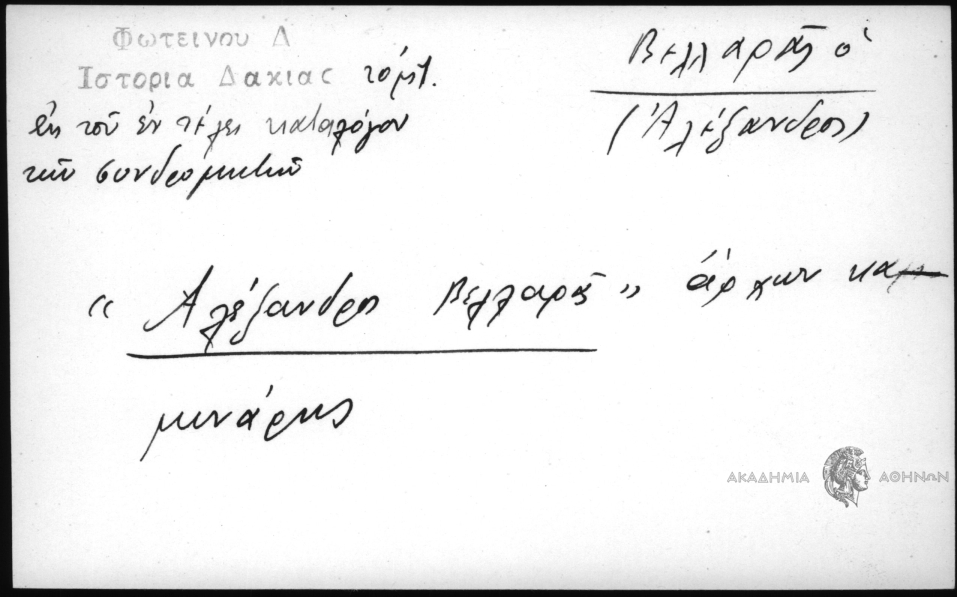 Φωτεινου Δ
Ιστορια Δακιας τόμ1.
εἰς τοῦ ἐν τέλει καταλόγου
τῶν συνδρομητῶν
Βελλαρᾶς ὁ
(Ἀλέξανδρος)
« Ἀλέξανδρος Βελλαρᾶς » ἄρχων καμ-
μινάρης
ΑΚΑΔΗΜΙΑ ΑΘΗΝΩΝ